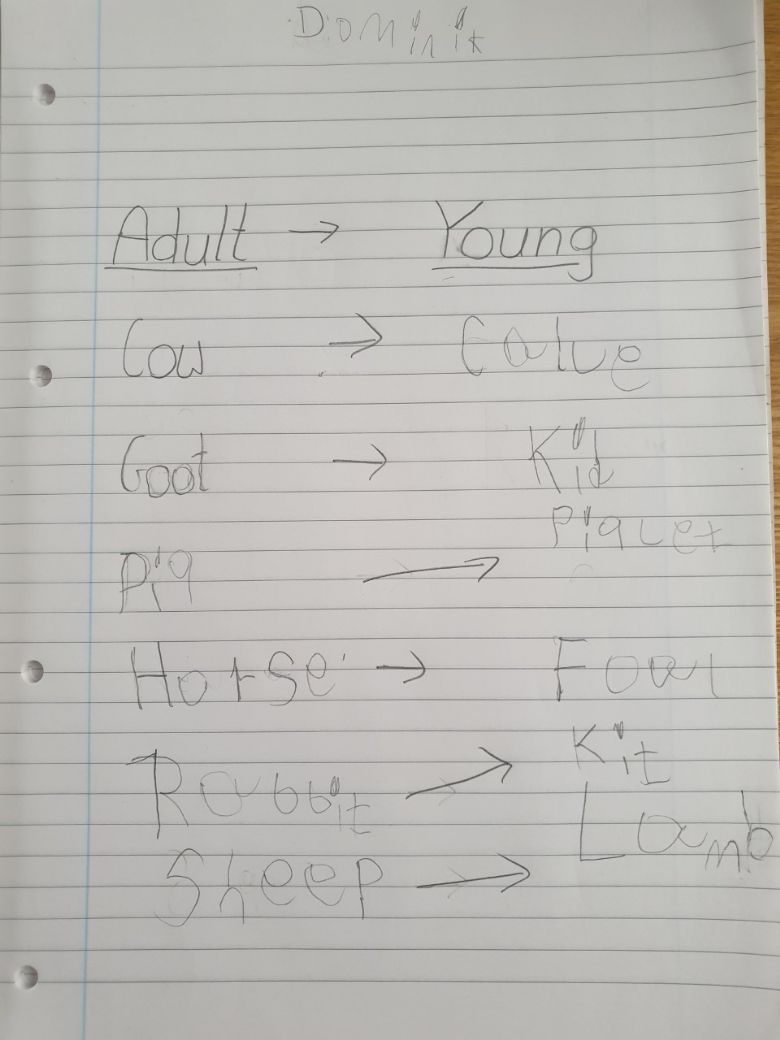 Dominik
Adult → Young
Cow → Calve
Goat → Kid
Pig → Piglet
Horse → Foal
Rabbit → Kit
Sheep → Lamb